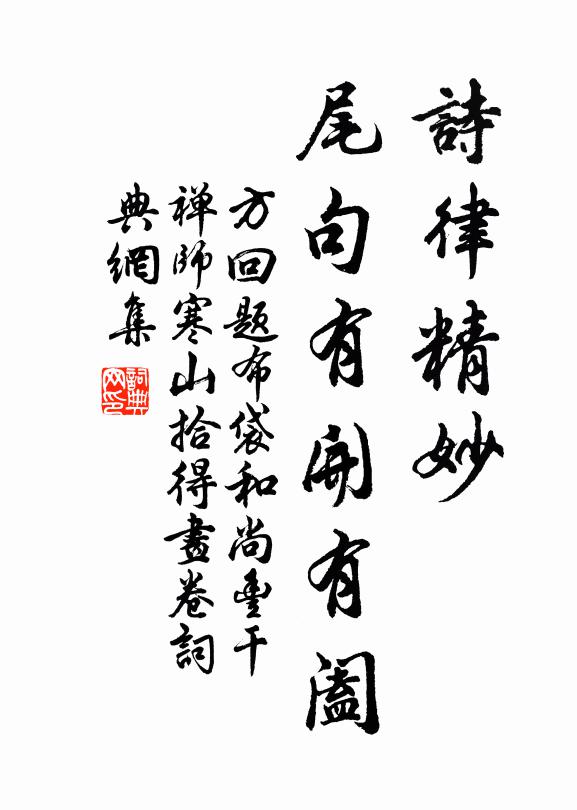 詩律精妙
尾句有開有闔
方回題布袋和尚豐干
禅師寒山拾得畫卷詞
典網集
詞典
网印